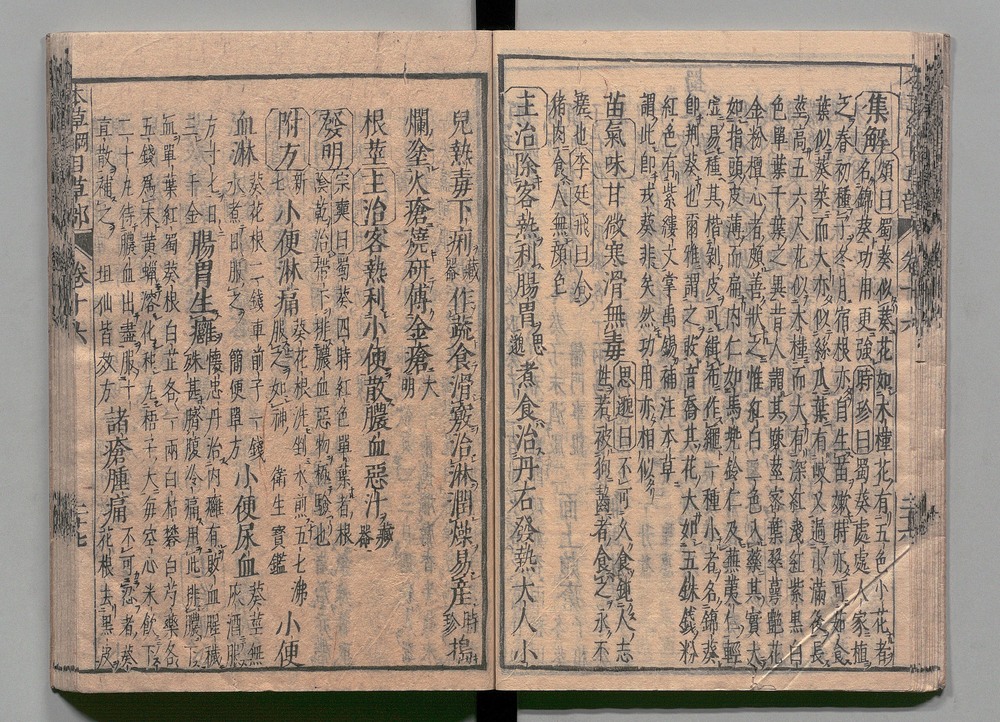 集解頌曰蜀葵似葵花如木槿花有五色小花者
名錦葵功用更強時珍曰蜀葵處處人家植
之春初種子冬月宿根亦自生苗嫩時亦可茹食
葉似葵菜而大亦似絲瓜葉有岐叉過小滿後長
莖高五六尺花似木槿而大有深紅淺紅紫黑白
色單葉千葉之異昔人謂其疎莖密葉翠萼艷花
金粉檀心者頗善狀之惟紅白二色入藥其實大
如指頭皮薄而扁內仁如馬兜鈴仁及蕪荑仁輕
虛易種其楷剝皮可緝布作繩一種小者名錦葵
即荆葵也爾雅謂之荍音喬其花大如五銖錢粉
紅色有紫縷文掌禹錫補注本草
謂此即戎葵非矣然功用亦相似
苗氣味甘微寒滑無毒思邈曰不可久食鈍人志性若被狗齧者食之永不
瘥也李廷飛曰合
猪肉食人無顏色
主治除客熱利腸胃思邈煮食治丹石發熱大人小
兒熱毒下痢藏器作蔬食滑竅治淋潤燥易産時珍搗
爛塗火瘡燒研傅金瘡大明
根莖主治客熱利小便散膿血惡汁藏器
發明宗奭曰蜀葵四時紅色單葉者根
陰乾治帶下排膿血惡物極驗也
附方新七小便淋痛葵花根洗剉水煎五七沸服之如神衛生寶鑑小便
血淋葵花根二錢車前子一錢水煮日服之簡便單方小便尿血葵莖無灰酒服
方寸匕日三千金腸胃生癰懷忠丹治內癰有敗血腥穢殊甚臍腹冷痛用此排膿下
血單葉紅蜀葵根白芷各一兩白枯礬白芍藥各
五錢爲末黃蠟溶化和丸梧子大每空心米飲下
二十丸待膿血出盡服十
宣散補之坦仙皆效方諸瘡腫痛不可忍者葵花根去黑皮
本草綱目草部 卷十六